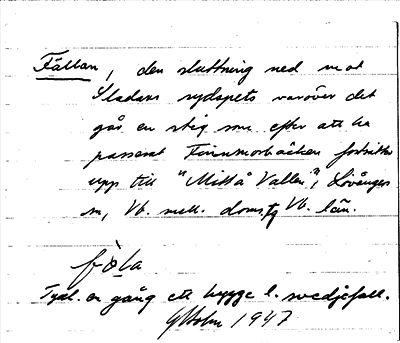 Fällan, den sluttning ned mot
Sladans sydspets varöver det
går en stig som efter att ha
passerat Finnmorbäcken fortsätter
upp till "Mittå Vallen", Lövånger
sn, Vb. mell. doms. Vb. län.
fòla
Tydl. en gång ett hygge l. svedjefall.
Holm 1947